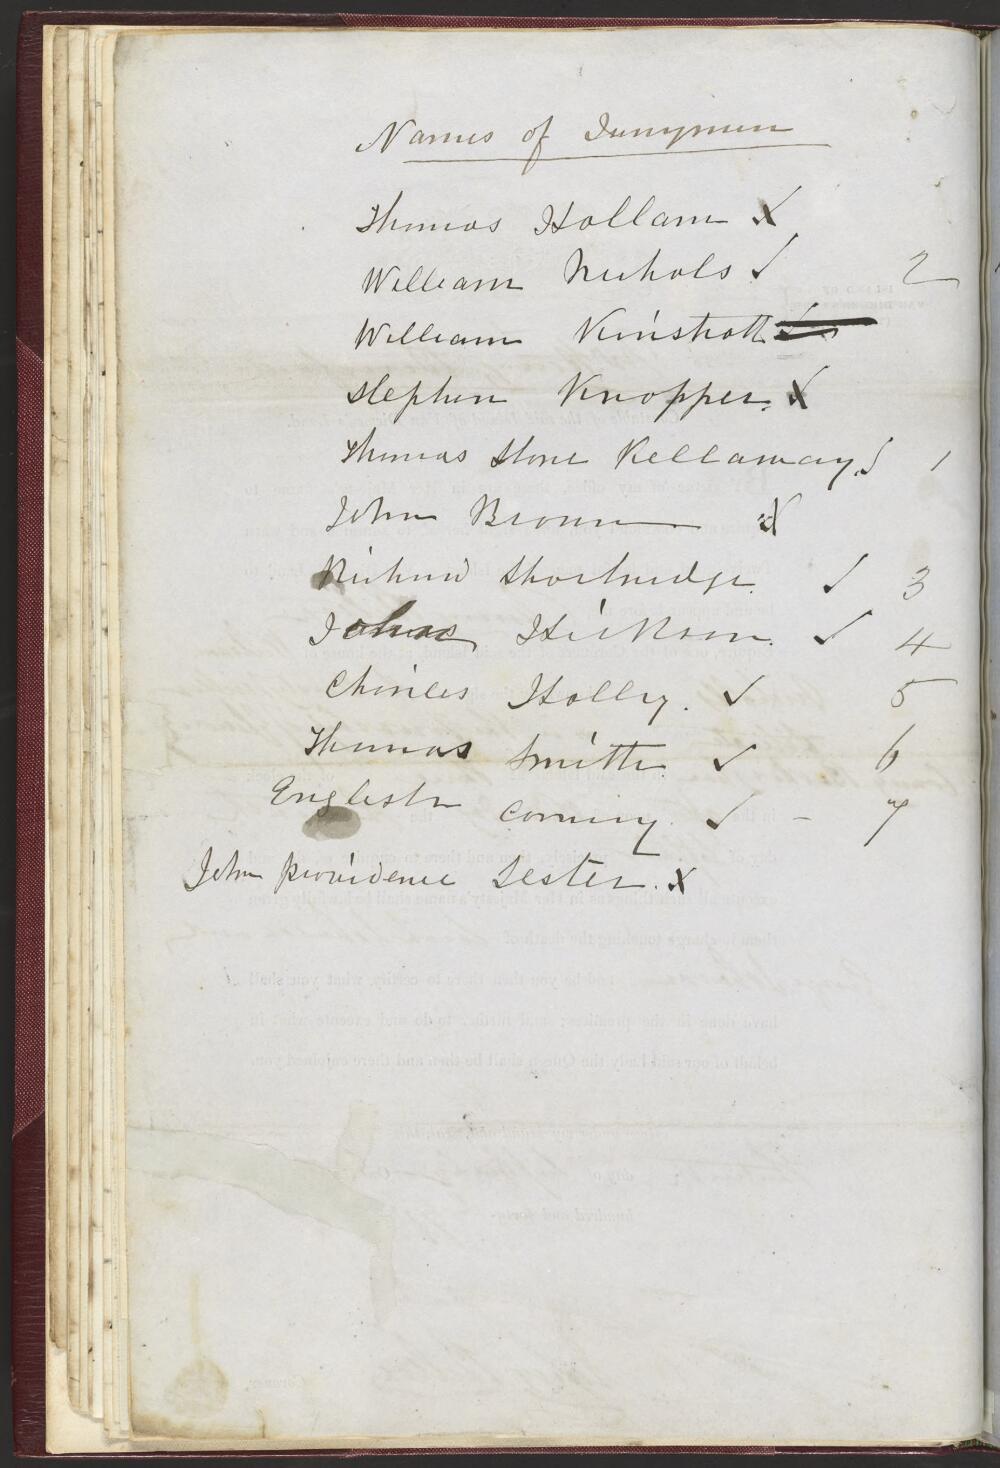 Names of Jurymen
Thomas Hollam X
William Nichols ✓ 2
William
Stephen Knopper. X
Thomas Stone Kellaway. ✓ 1
John Brown X
Richard Shortridge. ✓ 3
Hickson. ✓ 4
Charles Holley. ✓ 5
Thomas Smith. ✓ 6
English Corning. ✓ – 7
John Providence Lester. X